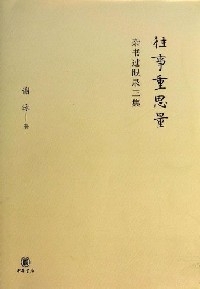 往事重思量
杂书过眼录三集
谢泳 著
中华书局